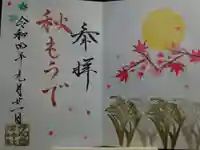 奉拝
秋もうで
令和四年九月廿一日